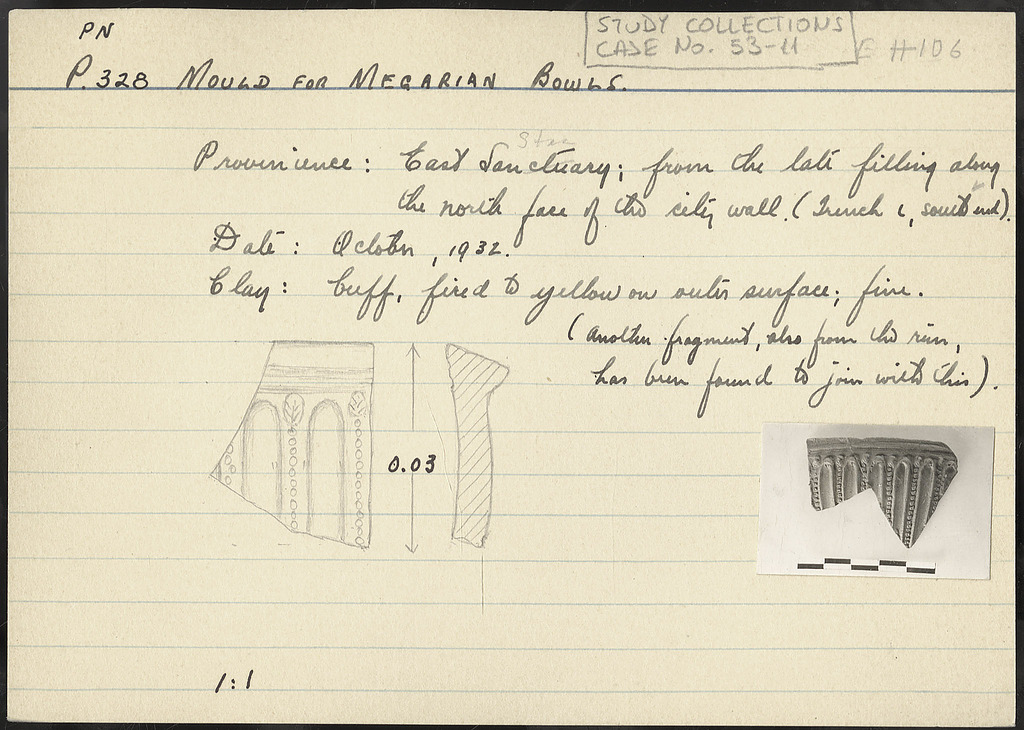 PN
STUDY COLLECTIONS
CASE No. 53-11
E H106
P.328 MOULD FOR MEGARIAN BOWLS.
Stoa
Provinience: East Sanctuary; from the late filling along
the north face of the city wall. (Trench 1, south end).
Date: October, 1932.
Clay: buff, fired to yellow on outer surface; fine.
(another fragment, also from the
has been found to join with this).
0.03
1:1